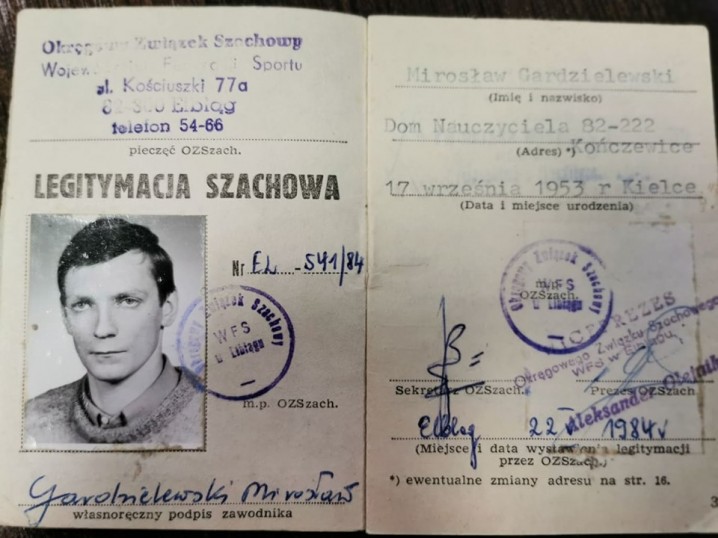 Okręgowy Związek Szachowy
Wojewódzkiej Federacji Sportu
al. Kościuszki 77a
82-300 Elbląg
telefon 54-66
pieczęć OZSzach.
LEGITYMACJA SZACHOWA
Nr EL -541/84
Okręgowy Związek Szachowy
WFS
w Elblągu
m.p. OZSzach.
Gardzielewski Mirosław
własnoręczny podpis zawodnika
Mirosław Gardzielewski
(Imię i nazwisko)
Dom Nauczyciela 82-222
(Adres) *) Kończewice
17 września 1953 r Kielce
(Data i miejsce urodzenia)
Okręgowy Związek Szachowy
WFS
w Elblągu
m.p.
OZSzach.
PREZES
Okręgowego Związku Szachowego
WFS w Elblągu
Sekretarz OZSzach. Prezes OZSzach.
Aleksander
Elbląg 22 V 1984 r
(Miejsce i data wystawienia legitymacji
przez OZSzach.)
*) ewentualne zmiany adresu na str. 16.
3